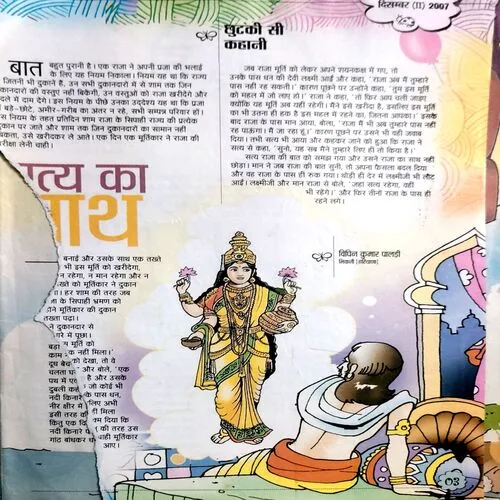 दिसम्बर (II) 2007
छुटकी सी
कहानी
बात बहुत पुरानी है। एक राजा ने अपनी प्रजा की भलाई
के लिए यह नियम निकाला। नियम यह था कि राज्य
जितनी भी दुकानें है, उन सभी दुकानदारों में से शाम तक जिन
दुकानदारों की वस्तुएं नहीं बिकेंगी, उन वस्तुओं को राजा खरीदेंगे और
दले में दाम देंगे। इस नियम के पीछे उनका उद्देश्य यह था कि प्रजा
बड़े-छोटे, अमीर-गरीब का अंतर न रहे, सभी सम्पन्न परिवार हों।
स नियम के तहत प्रतिदिन शाम राजा के सिपाही राज्य की प्रत्येक
दुकान पर जाते और शाम तक जिन दुकानदारों का सामान नहीं
बिकता, उसे खरीदकर ले आते। एक दिन एक मूर्तिकार ने राजा की
रीक्षा लेनी चाही।
त्य का
ाथ
बनाई और उसके साथ एक तख्ते
भी इस मूर्ति को खरीदेगा,
न रहेगा, न मान रहेगा और न
तख्ते को मूर्तिकार ने दुकान
ा। हर शाम की तरह जब
ा के सिपाही भ्रमण को
ोंने मूर्तिकार की दुकान
तख्ता पढ़ा।
ने दुकानदार से
ारे में पूछा।
मूर्ति को
क नहीं मिला।'
को देखा, तो वे
और बोले, 'एक
है और उसके
जो कोई भी
के पास धन,
लिए अभी
ी मिला
कम दिया कि
की तरह उस
वही मूर्तिकार
आए।
जब राजा मूर्ति को लेकर अपने शयनकक्ष में गए, तो
उनके पास धन की देवी लक्ष्मी आई और कहा, 'राजा अब मैं तुम्हारे
पास नहीं रह सकती।' कारण पूछने पर उन्होंने कहा, 'तुम इस मूर्ति
को महल में जो लाए हो।' राजा ने कहा, 'तो फिर आप चली जाइए
क्योंकि यह मूर्ति अब यहीं रहेगी। मैंने इसे खरीदा है, इसलिए इस मूर्ति
का भी उतना ही हक है इस महल में रहने का, जितना आपका।' इसके
बाद राजा के पास मान आया, बोला, 'राजा मैं भी अब तुम्हारे पास नहीं
रह पाऊंगा। मैं जा रहा हूं।' कारण पूछने पर उसने भी वही जवाब
दिया। तभी सत्य भी आया और कहकर जाने को हुआ कि राजा ने
सत्य से कहा, 'सुनो, यह सब मैंने तुम्हारे लिए ही तो किया है।'
सत्य राजा की बात को समझ गया और उसने राजा का साथ नहीं
छोड़ा। मान ने जब राजा की बात सुनी, तो अपना फैसला बदल दिया
और वह राजा के पास ही रुक गया। थोड़ी ही देर में लक्ष्मीजी भी लौट
आईं। लक्ष्मीजी और मान राजा से बोले, 'जहां सत्य रहेगा, वहीं
भी रहेंगे।' और फिर तीनों राजा के पास ही
रहने लगे।
विपिन कुमार पालड़ी
भिवानी (हरियाणा)
काम
दूध बेच
चलता ध
पथ में ए
दुबली क
नदी किनारे
नीर क्षीर में
इसी तरह व
किंतु एक दि
नदी किनारे प
गांठ बांधकर ध
03